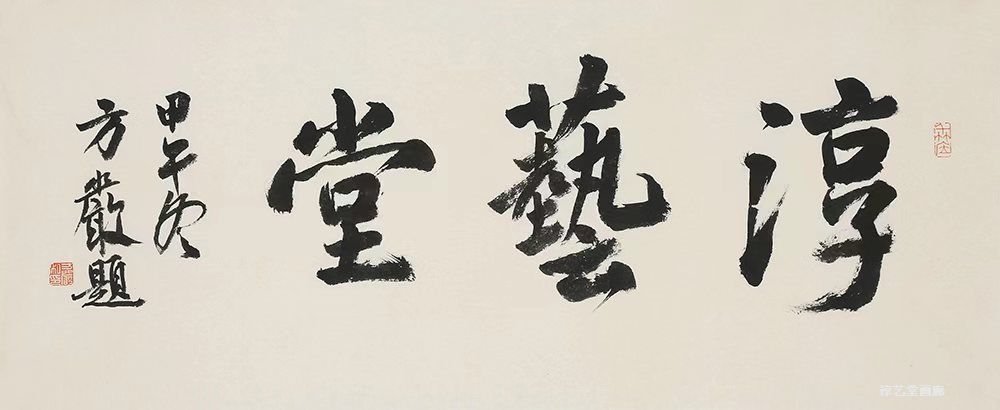 淳藝堂
甲午冬
方嚴題
淳艺堂画廊